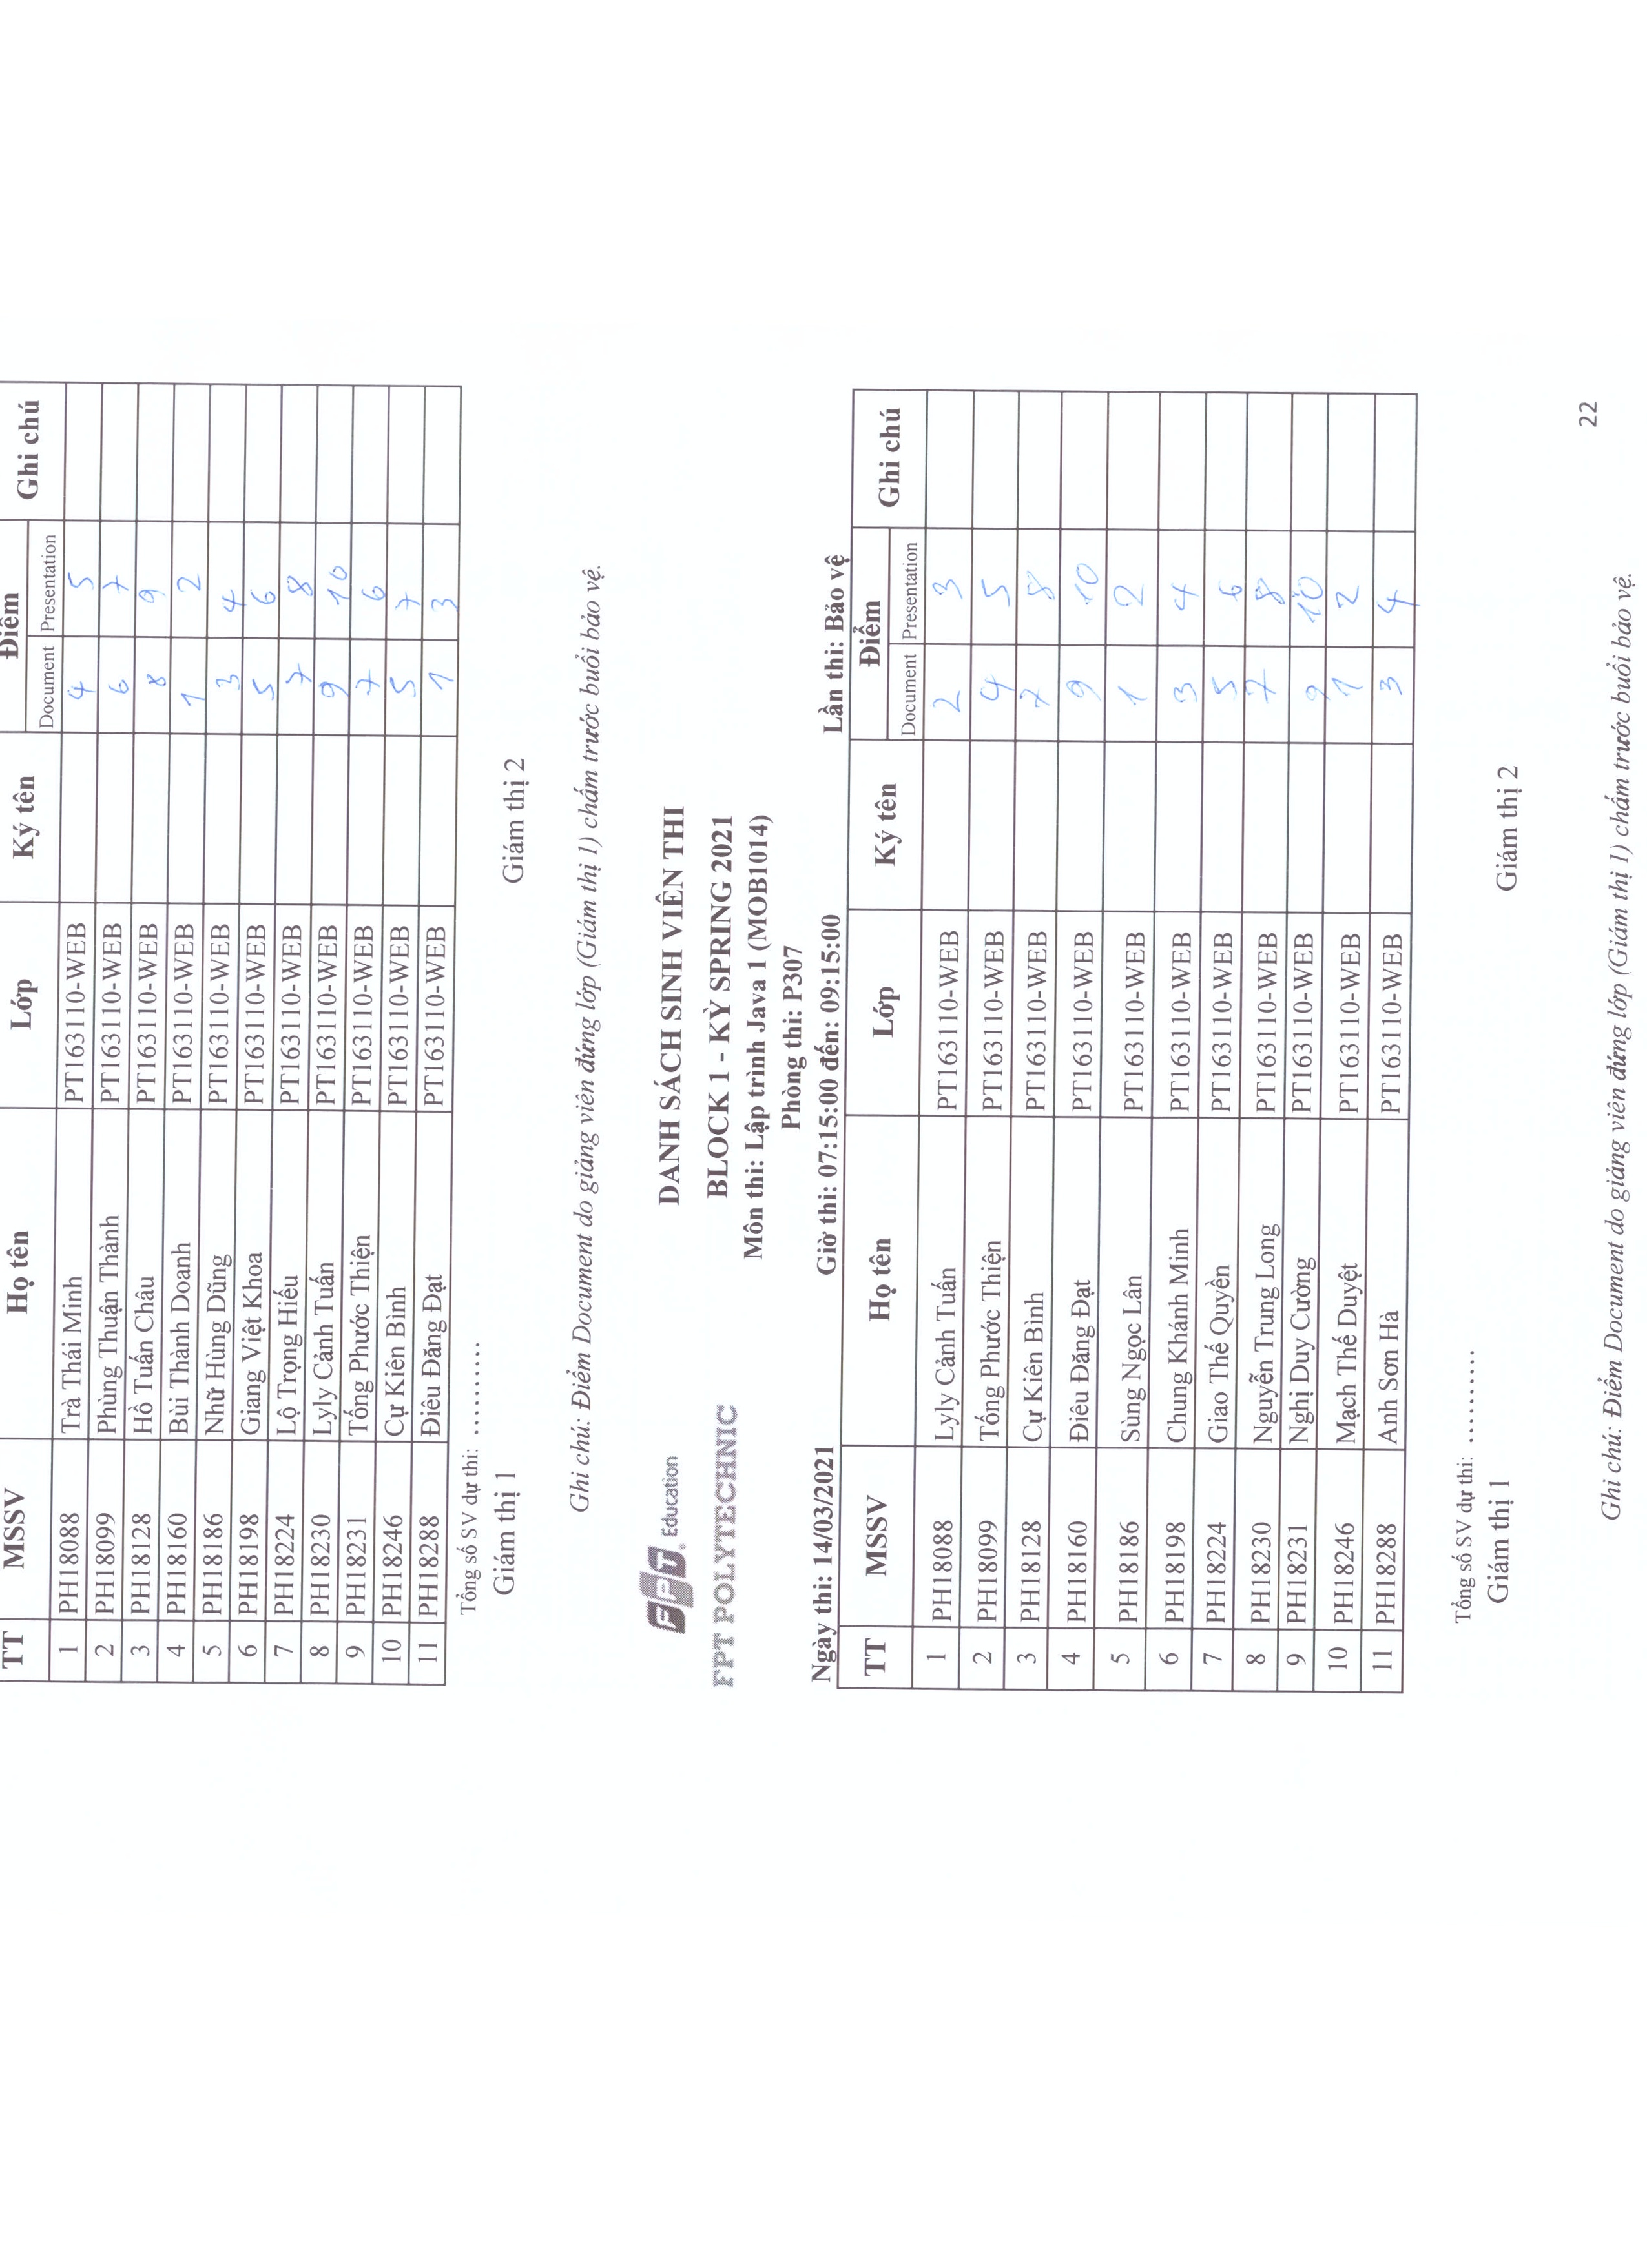 TT MSSV Họ tên Lớp Ký tên Điểm Ghi chú
Document Presentation
1 PH18088 Trà Thái Minh PT163110-WEB 4 5
2 PH18099 Phùng Thuận Thành PT163110-WEB 6 7
3 PH18128 Hồ Tuấn Châu PT163110-WEB 8 9
4 PH18160 Bùi Thành Doanh PT163110-WEB 1 2
5 PH18186 Nhữ Hùng Dũng PT163110-WEB 3 4
6 PH18198 Giang Việt Khoa PT163110-WEB 5 6
7 PH18224 Lộ Trọng Hiếu PT163110-WEB 7 8
8 PH18230 Lyly Cảnh Tuấn PT163110-WEB 9 10
9 PH18231 Tống Phước Thiện PT163110-WEB 7 6
10 PH18246 Cự Kiên Bình PT163110-WEB 5 7
11 PH18288 Điêu Đăng Đạt PT163110-WEB 1 3
Tổng số SV dự thi: ..........
Giám thị 1 Giám thị 2
Ghi chú: Điểm Document do giảng viên đứng lớp (Giám thị 1) chấm trước buổi bảo vệ.
FPT Education
FPT POLYTECHNIC
DANH SÁCH SINH VIÊN THI
BLOCK 1 - KỲ SPRING 2021
Môn thi: Lập trình Java 1 (MOB1014)
Phòng thi: P307
Ngày thi: 14/03/2021 Giờ thi: 07:15:00 đến: 09:15:00 Lần thi: Bảo vệ
TT MSSV Họ tên Lớp Ký tên Điểm Ghi chú
Document Presentation
1 PH18088 Lyly Cảnh Tuấn PT163110-WEB 2 3
2 PH18099 Tống Phước Thiện PT163110-WEB 4 5
3 PH18128 Cự Kiên Bình PT163110-WEB 7 8
4 PH18160 Điêu Đăng Đạt PT163110-WEB 9 10
5 PH18186 Sùng Ngọc Lân PT163110-WEB 1 2
6 PH18198 Chung Khánh Minh PT163110-WEB 3 4
7 PH18224 Giao Thế Quyền PT163110-WEB 5 6
8 PH18230 Nguyễn Trung Long PT163110-WEB 7 8
9 PH18231 Nghị Duy Cường PT163110-WEB 9 10
10 PH18246 Mạch Thế Duyệt PT163110-WEB 1 2
11 PH18288 Anh Sơn Hà PT163110-WEB 3 4
Tổng số SV dự thi: ..........
Giám thị 1 Giám thị 2
Ghi chú: Điểm Document do giảng viên đứng lớp (Giám thị 1) chấm trước buổi bảo vệ.
22